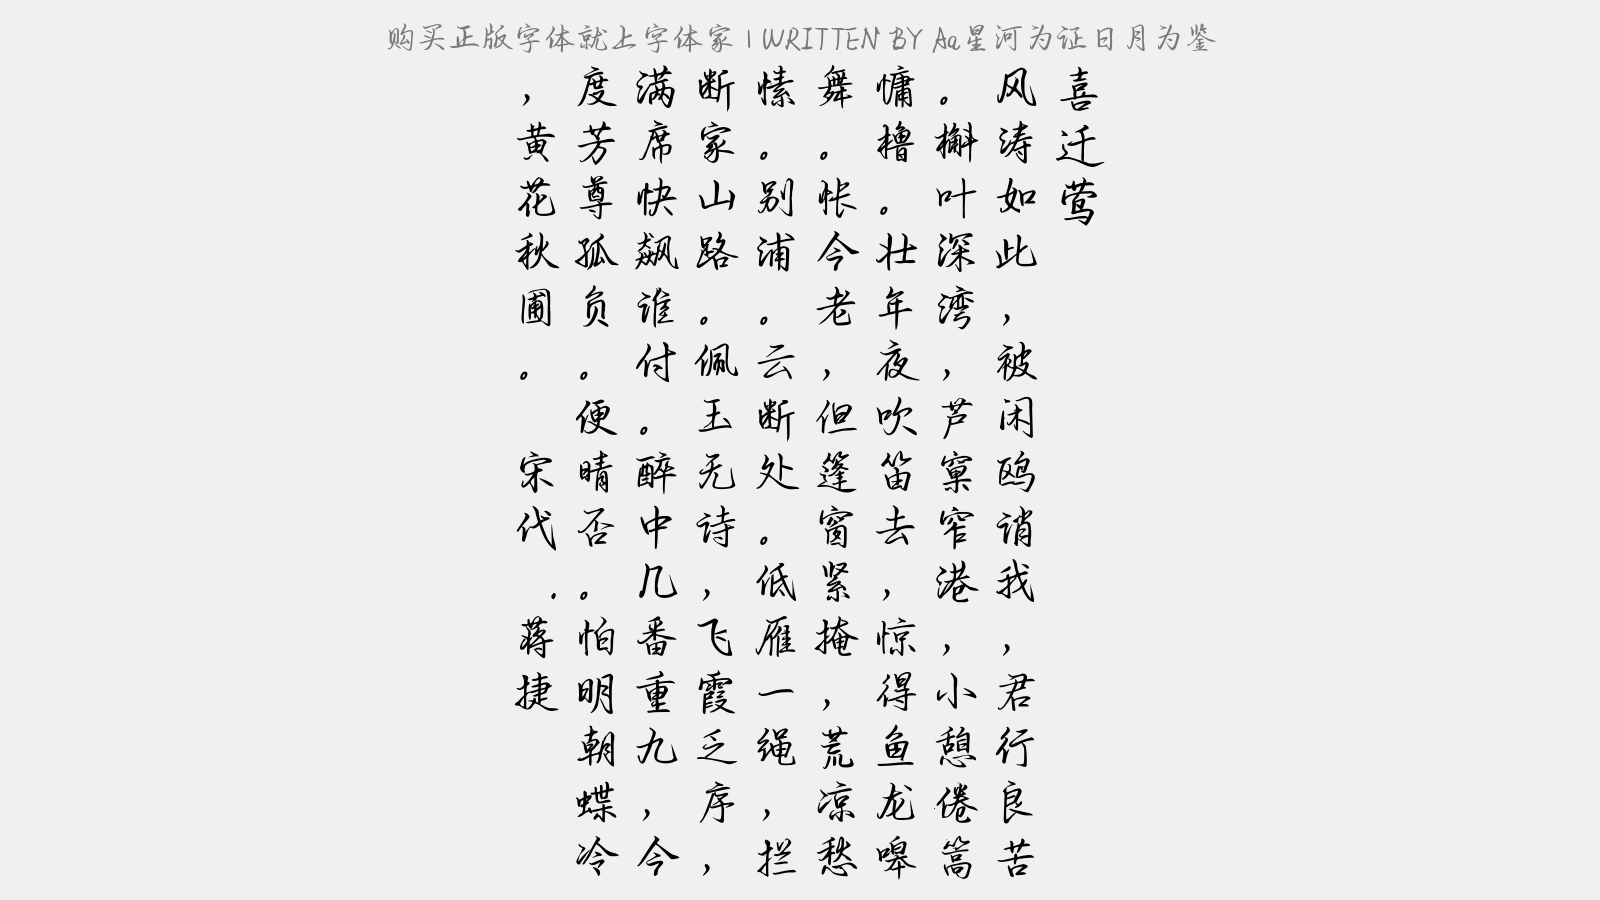 购买正版字体就上字体家 | WRITTEN BY Aa星河为证日月为鉴
喜迁莺
风涛如此，被闲鸥诮我，君行良苦
。槲叶深湾，芦窠窄港，小憩倦篙
慵橹。壮年夜吹笛去，惊得鱼龙嗥
舞。怅今老，但篷窗紧掩，荒凉愁
愫。别浦。云断处。低雁一绳，拦
断家山路。佩玉无诗，飞霞乏序，
满席快飙谁付。醉中几番重九，今
度芳尊孤负。便晴否。怕明朝蝶冷
，黄花秋圃。
宋代.蒋捷